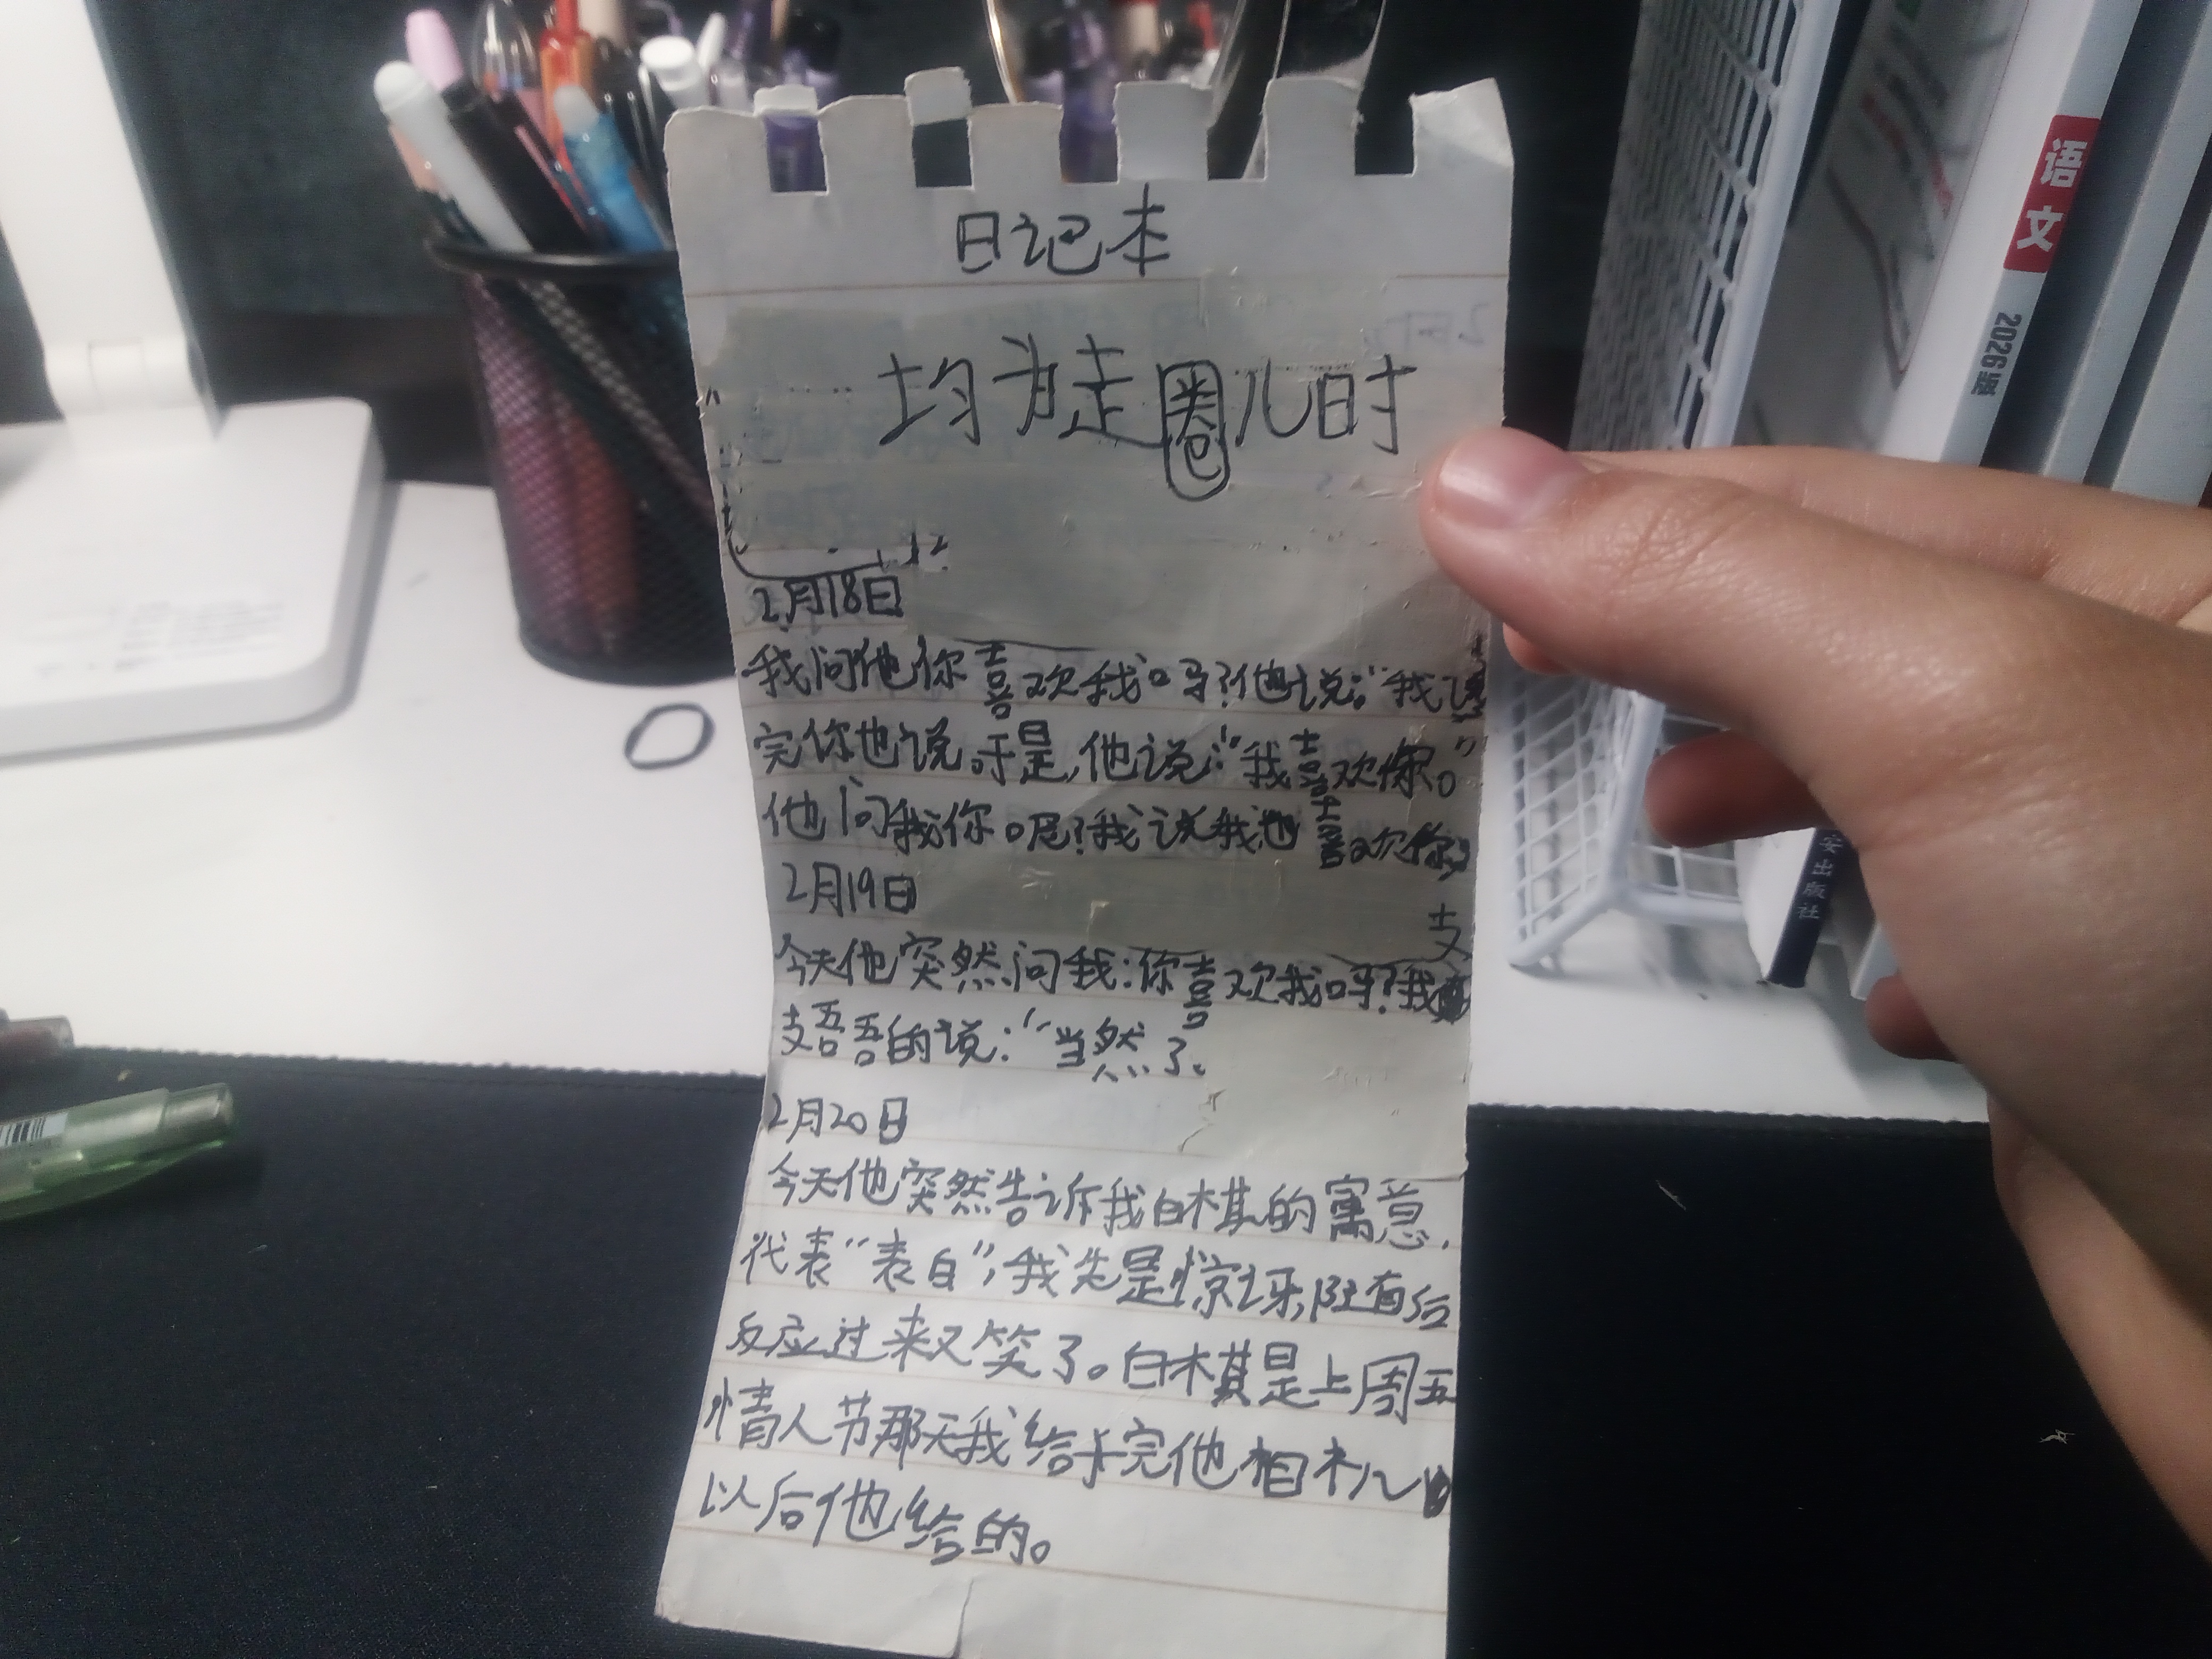 日记本
均为走圈儿时
2月18日
我问他你喜欢我吗?他说:"我说
完你也说.于是,他说:"我喜欢你。"
他问我你呢?我说我也喜欢你
2月19日
支
今天他突然问我:你喜欢我吗?我
支吾吾的说:"当然了。
2月20日
今天他突然告诉我白棋的寓意,
代表"表白",我先是惊讶,随后
反应过来又笑了。白棋是上周五
情人节那天我给完他相
以后他给的。
语文
2026版
安出版社